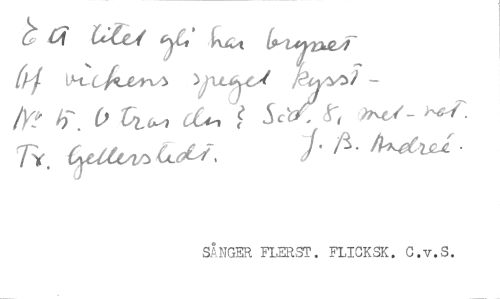 Ett litet gli har brynet
Af vickens spegel kysst -
No 5. O tror du? Sid. 8, met-not.
Tr. Gellerstedt. J. B. Andreé.
SÅNGER FLERST. FLICKSK. C.v.S.